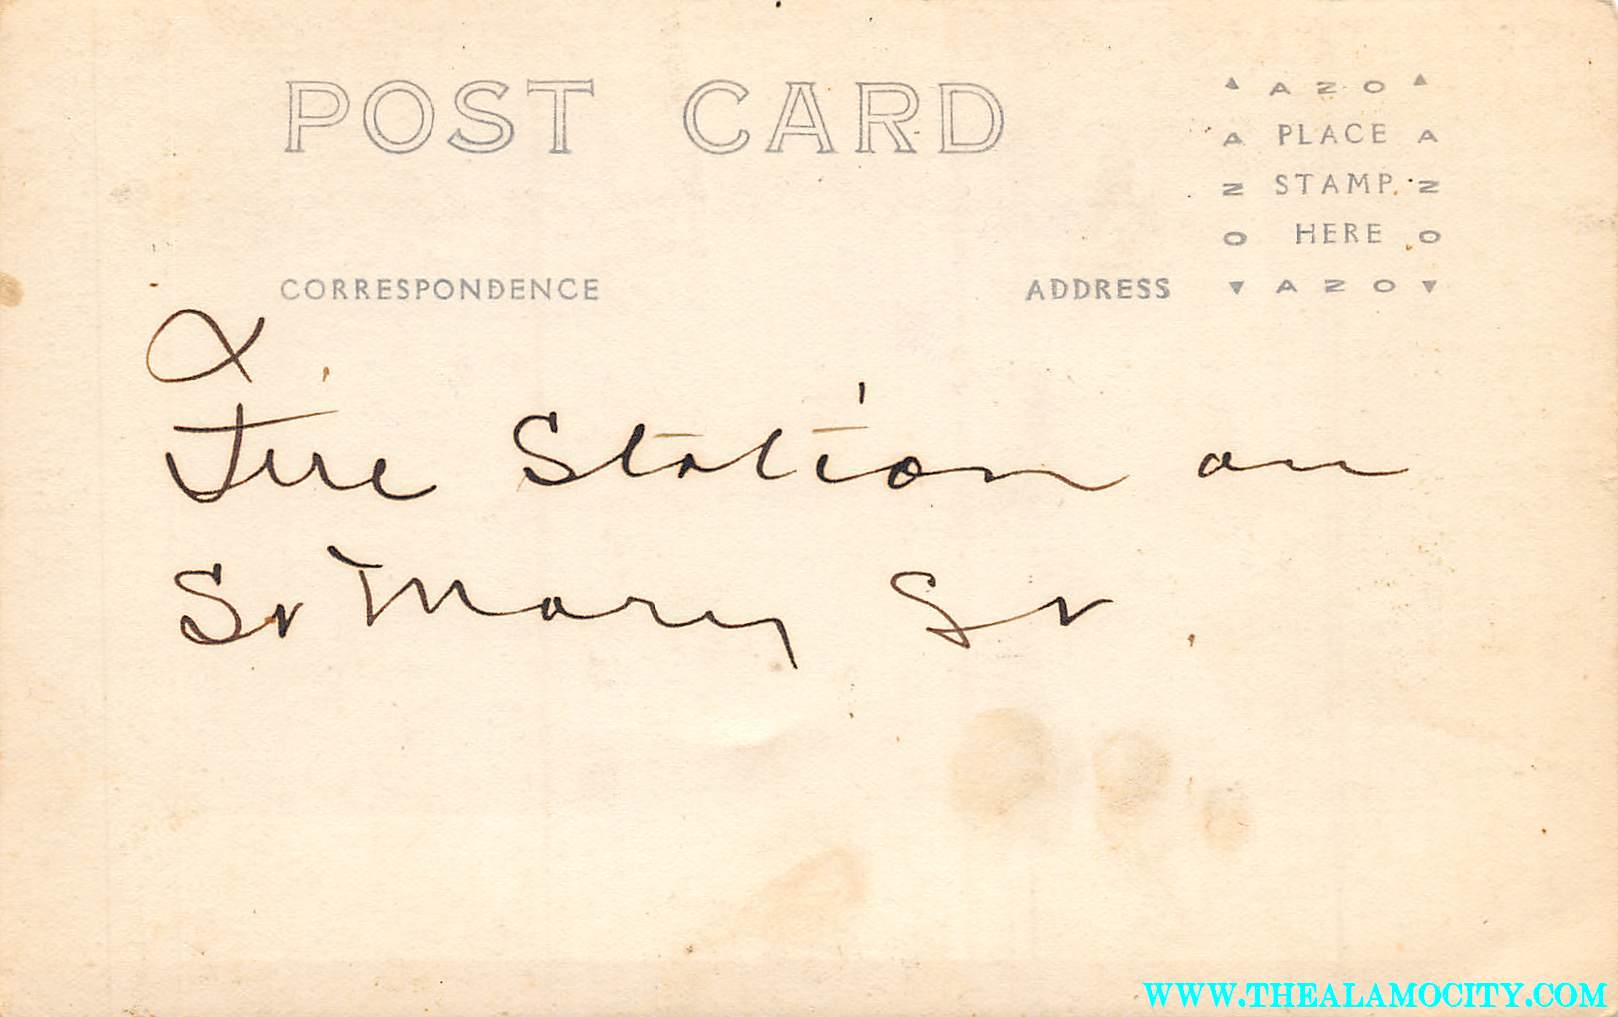 POST CARD
▲ AZO ▲
A PLACE A
Z STAMP Z
O HERE O
CORRESPONDENCE
ADDRESS
▼ AZO ▼
Fire Station on
St Mary St
WWW.THEALAMOCITY.COM